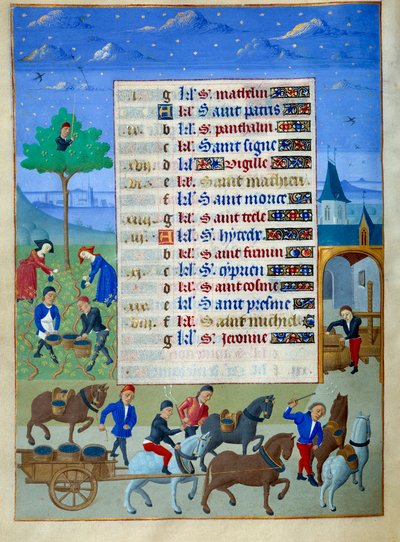 g kl S. mathelin
A kl Saint patris
ix. b kl S. panthalin
c kl Saint signe
xvii. d kl Vigille
vi. e kl Saint mathieu
f kl Saint morice
xiiii. g kl Saint tecle
iii. A kl S.
b kl Saint firmin
xi. c kl S. cyprien
d kl Saint cosme
xix. e kl Saint presme
viii. f kl Saint michiel
g kl S. Jeronne